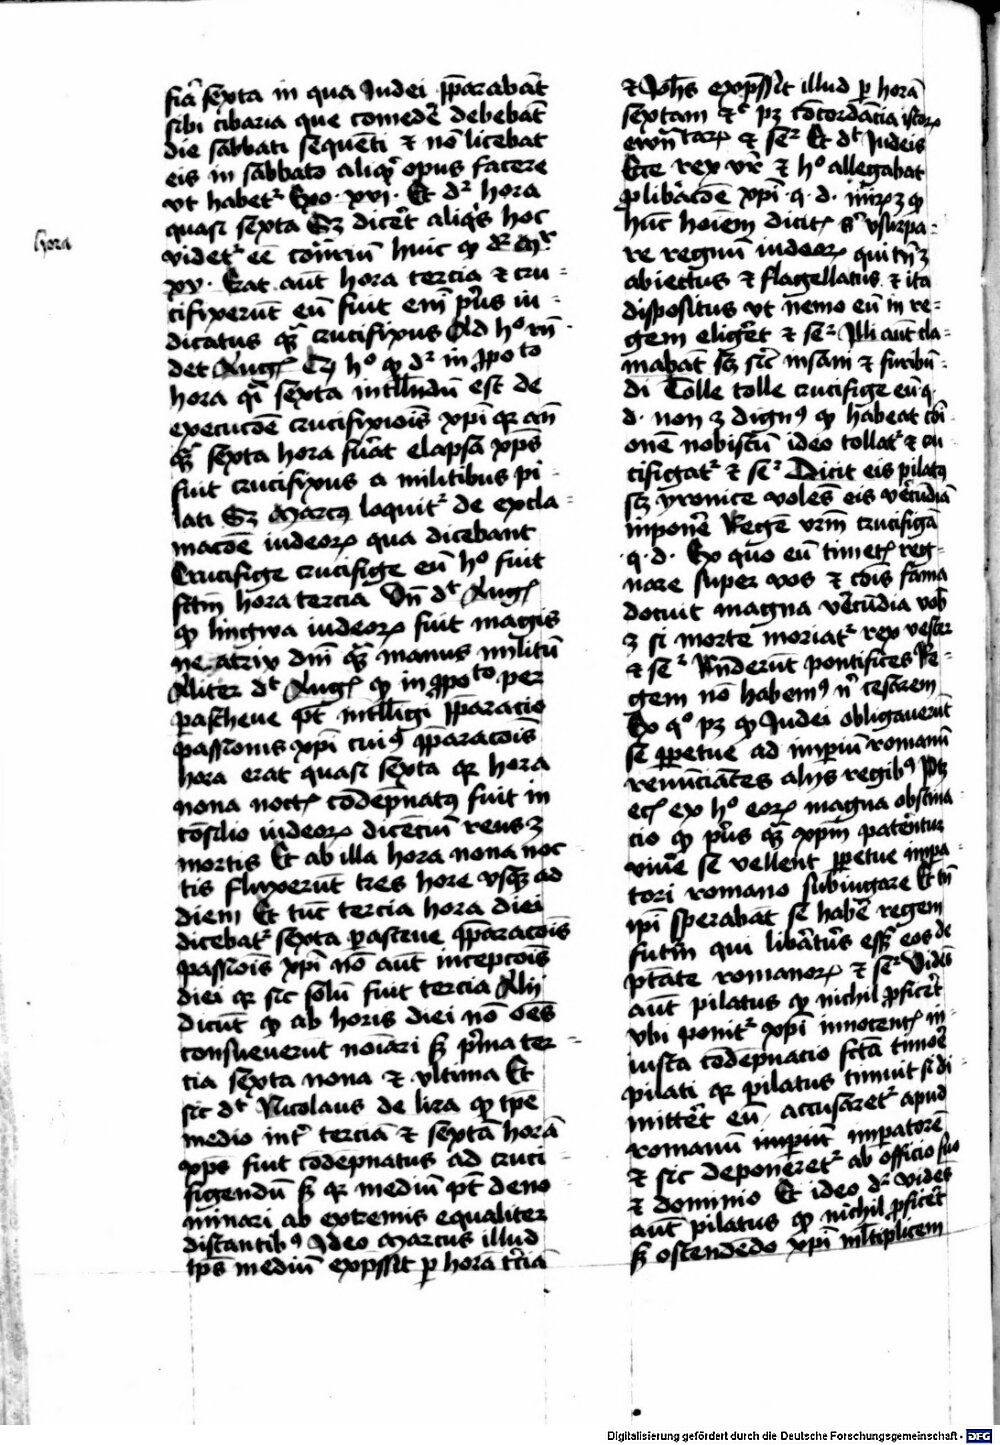 hora
fia sexta in qua Judei pparabāt
sibi cibaria que comedē debebāt
die sabbati sequēti ⁊ nō licebat
eis in sabbato aliqd opus facere
vt habetr Exo · xvi · Et dr hora
quasi sexta Sꝫ dicēt aliqis hoc
videtr eē cōtriū huic qꝫ dr Mr
xv · Erat aūt hora tercia ⁊ cru
cifixerūt eū fuit enī pus iu
dicatus qꝫ crucifixus Ad ho rn
det Aug ho qꝫ dr in ppoto
hora qi sexta intlldū est de
execucōe crucifixiois xpi qꝛ an
qꝫ sexta hora fuāt elapsa xps
fuit crucifixus a militibus pi
lati Sꝫ Marcꝰ loquitr de excla
macōe iudeoꝝ qua dicebant
Crucifige crucifige eū ho fuit
fctm hora tercia Vn dt Aug
qꝫ lingwa iudeoꝝ fuit magis
ne atrix dni qꝫ manus militū
Aliter dt Aug qꝫ in ppoto per
pascheue pt intlligi pparacio
passionis xpi cuiꝰ pparacois
hora erat quasi sexta qꝛ hora
nona noct condēpnatꝰ fuit in
cōsilio iudeoꝝ dicenciū reus ꝫ
mortis Et ab illa hora nona noc
tis fluxerūt tres hore vsqꝫ ad
diem Et tūc tercia hora diei
dicebatr sexta pasceue pparacois
passiois xpi nō aūt incepcois
diei qꝛ sic solū fuit tercia Alij
dicūt qꝫ ab horis diei nō oēs
consueuerūt noiari sꝫ pma ter
cia sexta nona ⁊ vltima Et
sic dt Nicolaus de lira qꝫ tpe
medio intr terciā ⁊ sextā horā
xps fuit condēpnatus ad cruci
figendū sꝫ qꝛ mediū pt deno
minari ab extremis equaliter
distantibꝰ Ideo Marcus illud
tps mediū expssit p horā tciā
⁊ Johs expssit illud p horā
sextam ⁊c pꝫ concordācia istoꝝ
ewntaꝝ ⁊ ser Et dt Judeis
Ecce rex vr ⁊ ho allegabat
p libacoe xpi · q · d · mir ꝫ qꝫ
hūc hoiem dicit sr vsurpa
re regnū iudeoꝝ qui tn ꝫ
abiectus ⁊ flagellatus ⁊ ita
dispositus vt nemo eū in re
gem eligēt ⁊ ser Illi aut cla
mabāt sꝫ sic insani ⁊ furibū
di Tolle tolle crucifige eū q
d · non ꝫ dignꝰ qꝫ habeat cōi
onē nobiscū ideo tollatr ⁊ cu
cifigatr ⁊ ser Dicit eis pilatꝰ
sꝫ yronice volēs eis vecūdiā
inponē Regē vrm crucifigā
· q · d · Ex quo eū timet reg
nare super vos ⁊ cōis fama
docuit magna vecūdia vob
ꝫ si morte moriatr rex vester
⁊ ser Rnderūt pontifices Re
gem nō habemꝰ nr cesarem
Ex qo pꝫ qꝫ Judei obligauerūt
se ppetue ad inpiū romanū
renūciātes alijs regibꝰ Ptꝫ
ec ex ho eoꝝ magna obstina
cio qꝫ pus qꝫ xpm paterentur
viuē se vellent ppetue inpa
tori romano subiugare Et tn
ipi sperabāt se habē regem
futm qui libatus esset eos de
ptate romanoꝝ ⁊ ser Vidēs
aūt pilatus qꝫ nichil pficēt
vbi ponitr xpi innocent in
iusta condēpnacio fcta timoē
pilati qꝛ pilatus timuit si di
mittēt eū accusaretr apud
romanū inpiū inpatorē
⁊ sic deponeretr ab officio suo
⁊ dominio Et ideo dr vidēs
aūt pilatus qꝫ nichil pficēt
sꝫ ostendēdo xpi mltiplicem
Digitalisierung gefördert durch die Deutsche Forschungsgemeinschaft - DFG